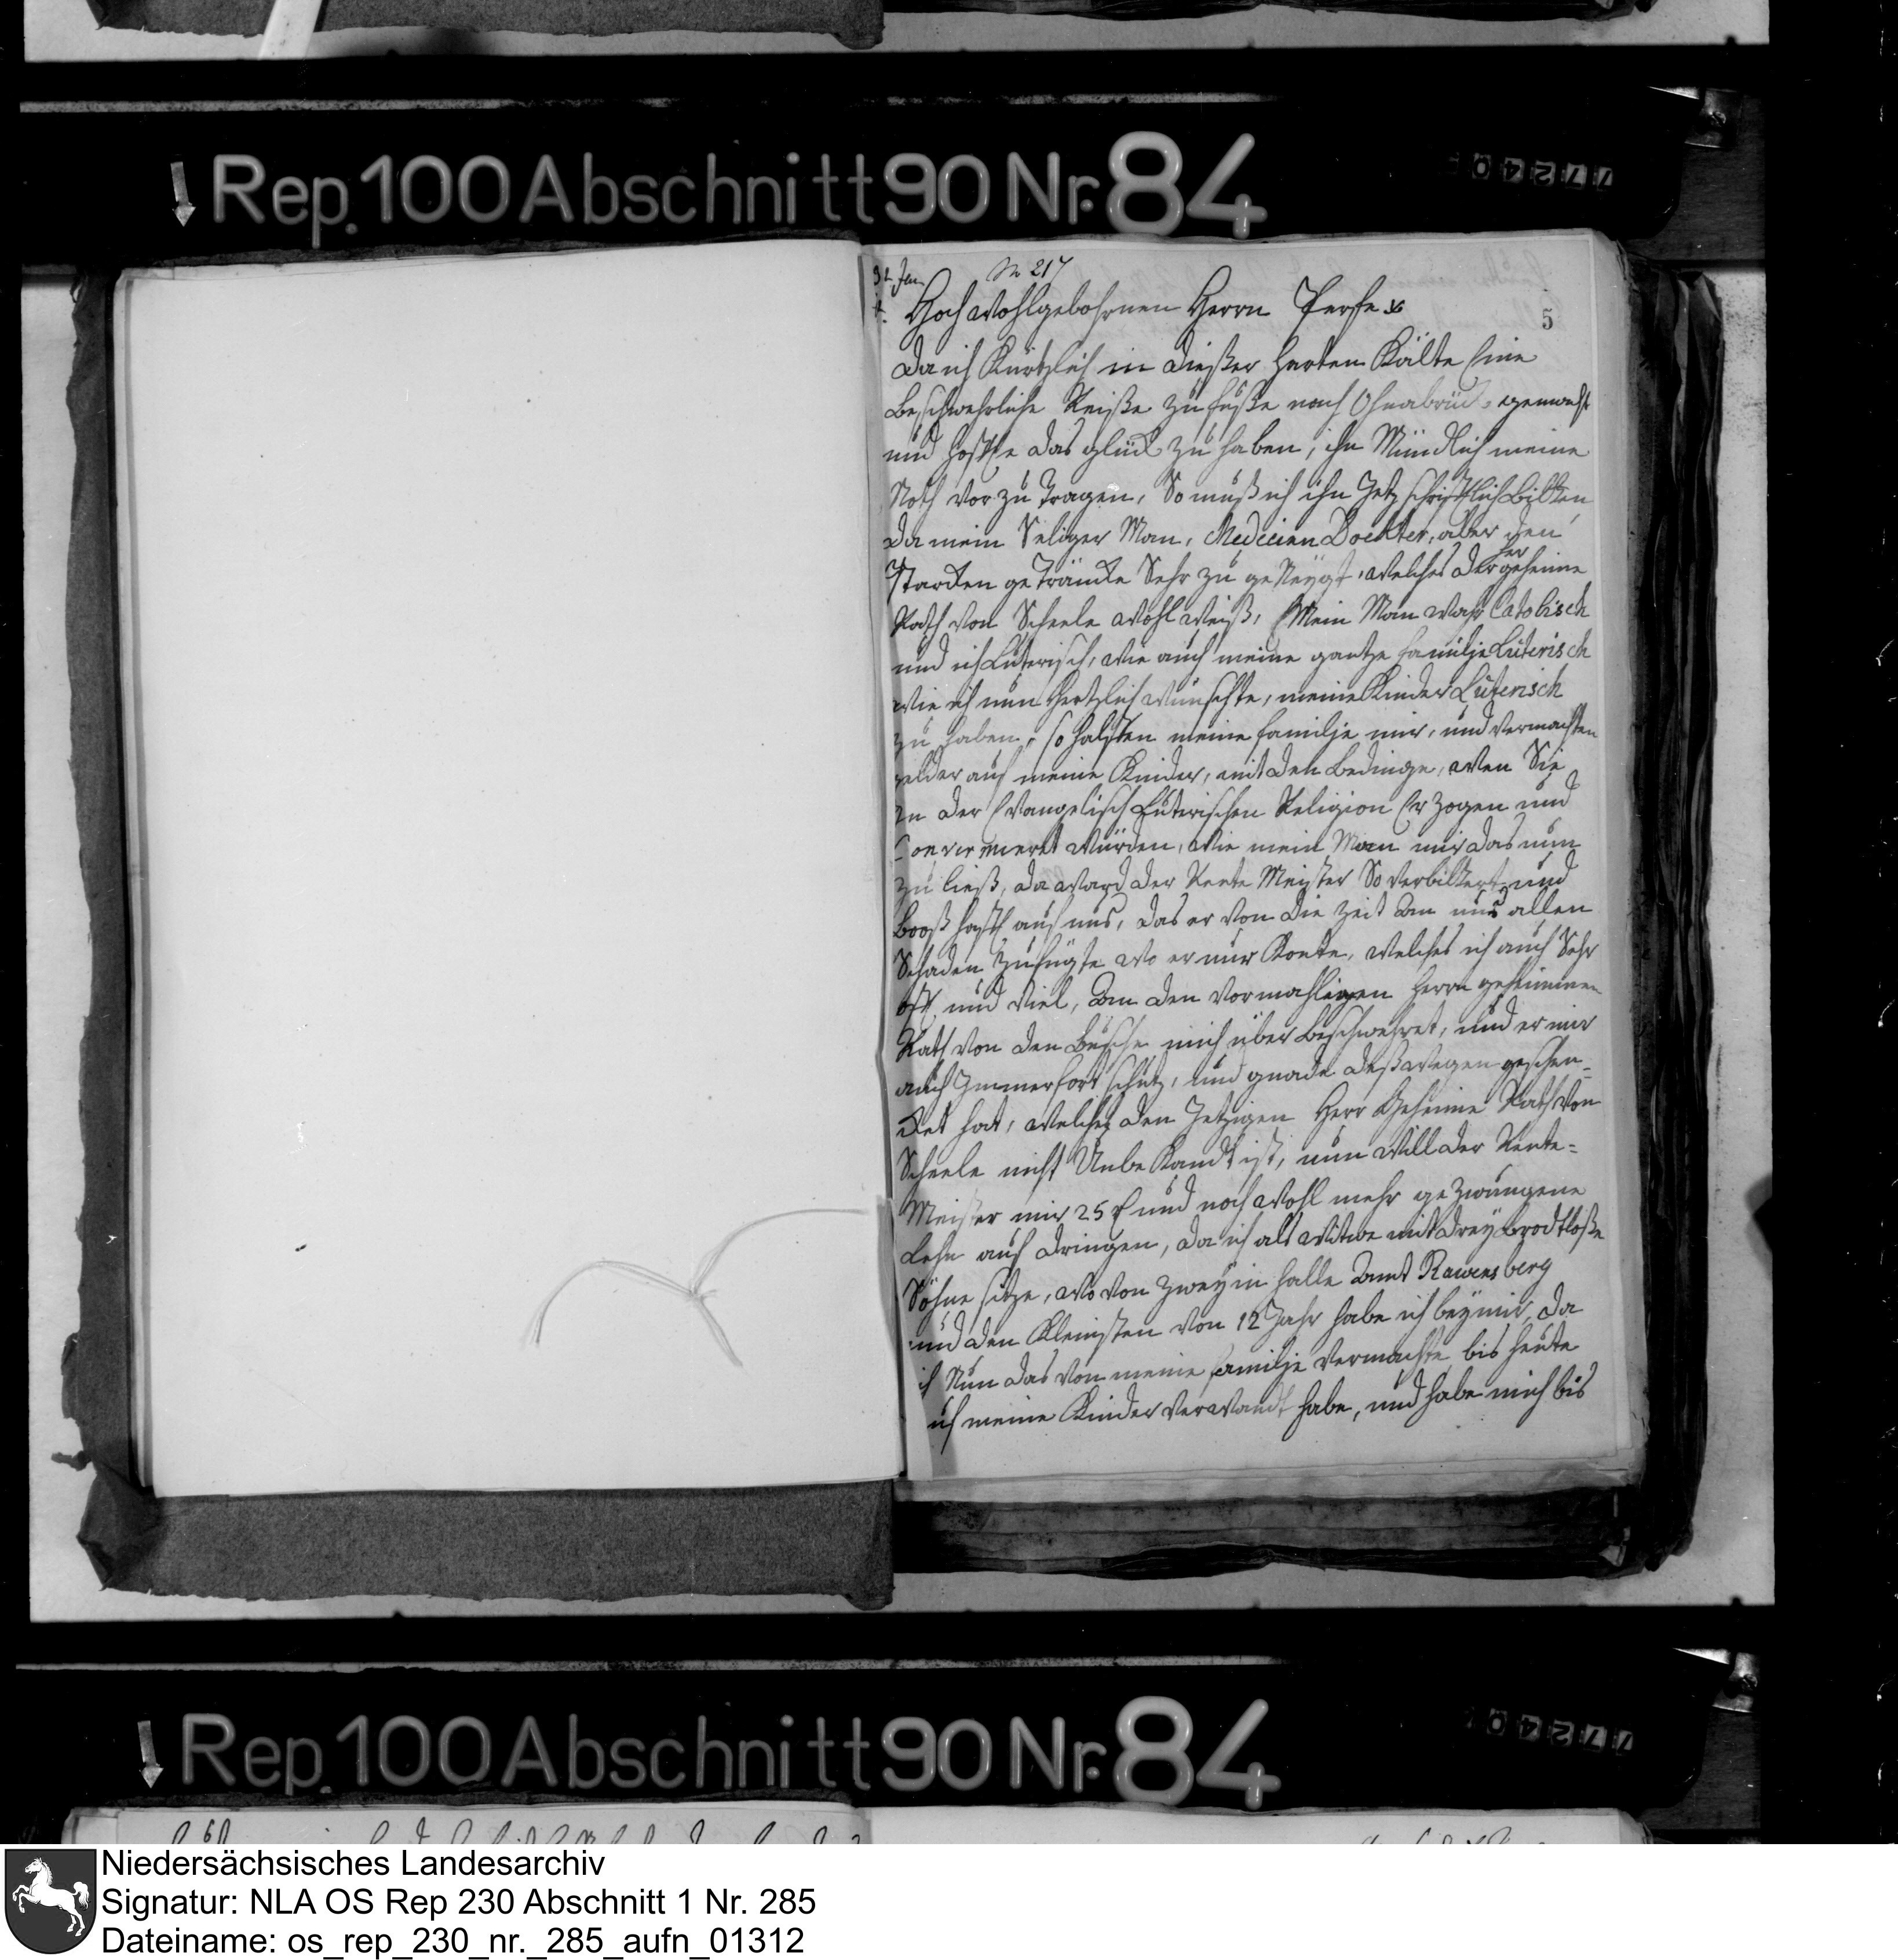 Rep. 100 Abschnitt 90 Nr. 84
77240
31 Jan
No 217
5
Hochwohlgebohrnen Herrn Perfex
Da ich Kürtzlich in dießer harten Kälte Eine
Beschwehrliche Reiße zu fuße nach Osnabrück gemacht
und hofte das glück zu haben, ihn Mündlich meine
Noth vor zu tragen, So muß ich ihn Jetz schriftlich bitten
da mein Seliger Man, Medicien Docktter, aber den
starcken geträncke Sehr zu geneygt, welches der her geheime
Rath von Scheele wohl weiß, Mein Man wahr Catolisch
und ich Luterisch, wie auch meine gantze familje Lüterisch
wie ich nun Hertzlich wünschte, meine Kinder Lüterisch
zu haben, so halfen meine familje mir, und vermachten
gelder auf meine Kinder, mit den bedinge, wen Sie
in der Evangelisch Luterischen Religion Er zogen und
Convirmieret würden, wie mein Man mir das nun
zu ließ, da ward der Rente Meister So verbittert und
booßhaft auf uns, das er von die Zeit an uns allen
Schaden zufügte wo er nur Konte, welches ich auch Sehr
oft und viel, an den vormahligen Herrn geheimmen
Rath von den Busche mich über beschwehret, und er mir
auch Immerfort schutz, und gnade deßwegen geschen-
cket hat, welches den Jetzigen Herr Geheime Rath von
Scheele nicht UnbeKandt ist, nun will der Rente-
Meister mir 25 und noch wohl mehr gezwungene
Lehn auf dringen, da ich alt witwe mit drey brodtloße
Söhne sitze, wo von zwey in Halle Amt Rawensberg
und den Kleinsten von 12 Jahr habe ich bey mir, da
ich Nun das von meine familje vermachte bis heute
auf meine Kinder verwandt habe, und habe mich bis
Rep. 100 Abschnitt 90 Nr. 84
77240
Niedersächsisches Landesarchiv
Signatur: NLA OS Rep 230 Abschnitt 1 Nr. 285
Dateiname: os_rep_230_nr._285_aufn_01312